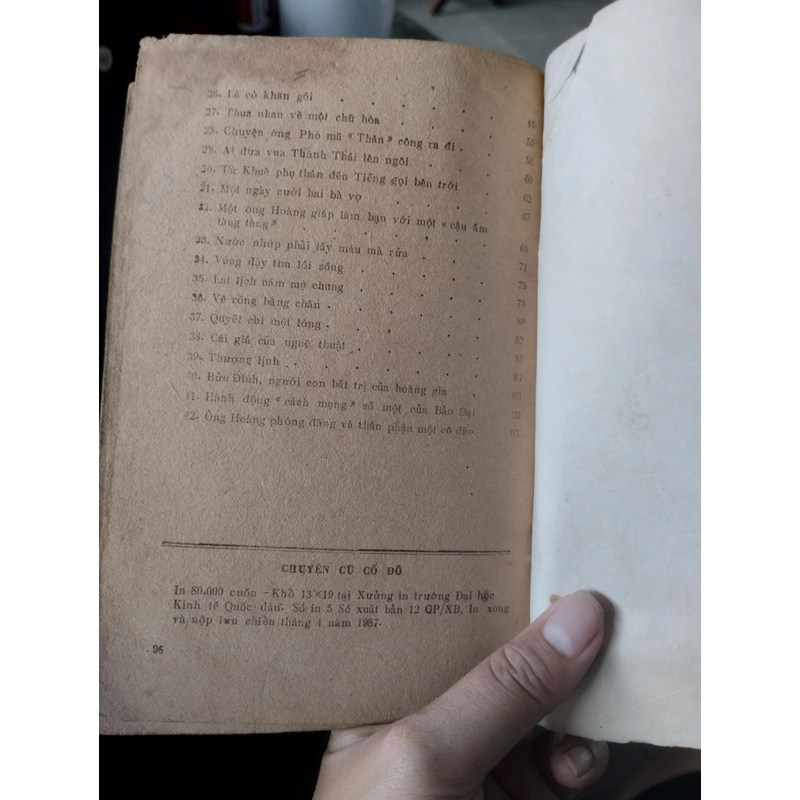 26. Lá cỏ khăn gói
27. Thua nhau về một chữ hòa 45
28. Chuyện ông Phò mã « Thân » công ra đi
29. Ai đưa vua Thành Thái lên ngôi 58
30. Từ Khuê phụ thán đến Tiếng gọi bên trời 60
31. Một ngày cưới hai bà vợ 62
32. Một ông Hoàng giáp làm bạn với một « cậu ấm
tàng tàng » 68
33. Nước nhớp phải lấy máu mà rửa 71
34. Vùng dậy tìm lối sống 75
35. Lai lịch nấm mộ chung 78
36. Vẽ rồng bằng chân 80
37. Quyết chí một lòng
38. Cái giá của nghệ thuật
39. Thượng lịnh 87
40. Bửu Đình, người con bất trị của hoàng gia 89
41. Hành động « cách mạng » số một của Bảo Đại 92
42. Ông Hoàng phóng đãng và thân phận một cô đào
CHUYỆN CŨ CỐ ĐÔ
In 80.000 cuốn – Khổ 13×19 tại Xưởng in trường Đại học
Kinh tế Quốc dân. Số in 5 Số xuất bản 12 GP/XB. In xong
và nộp lưu chiểu tháng 4 năm 1987.
96